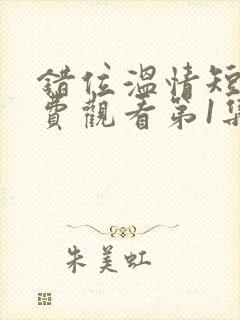 錯位溫情短
費觀看第1集
朱美虹